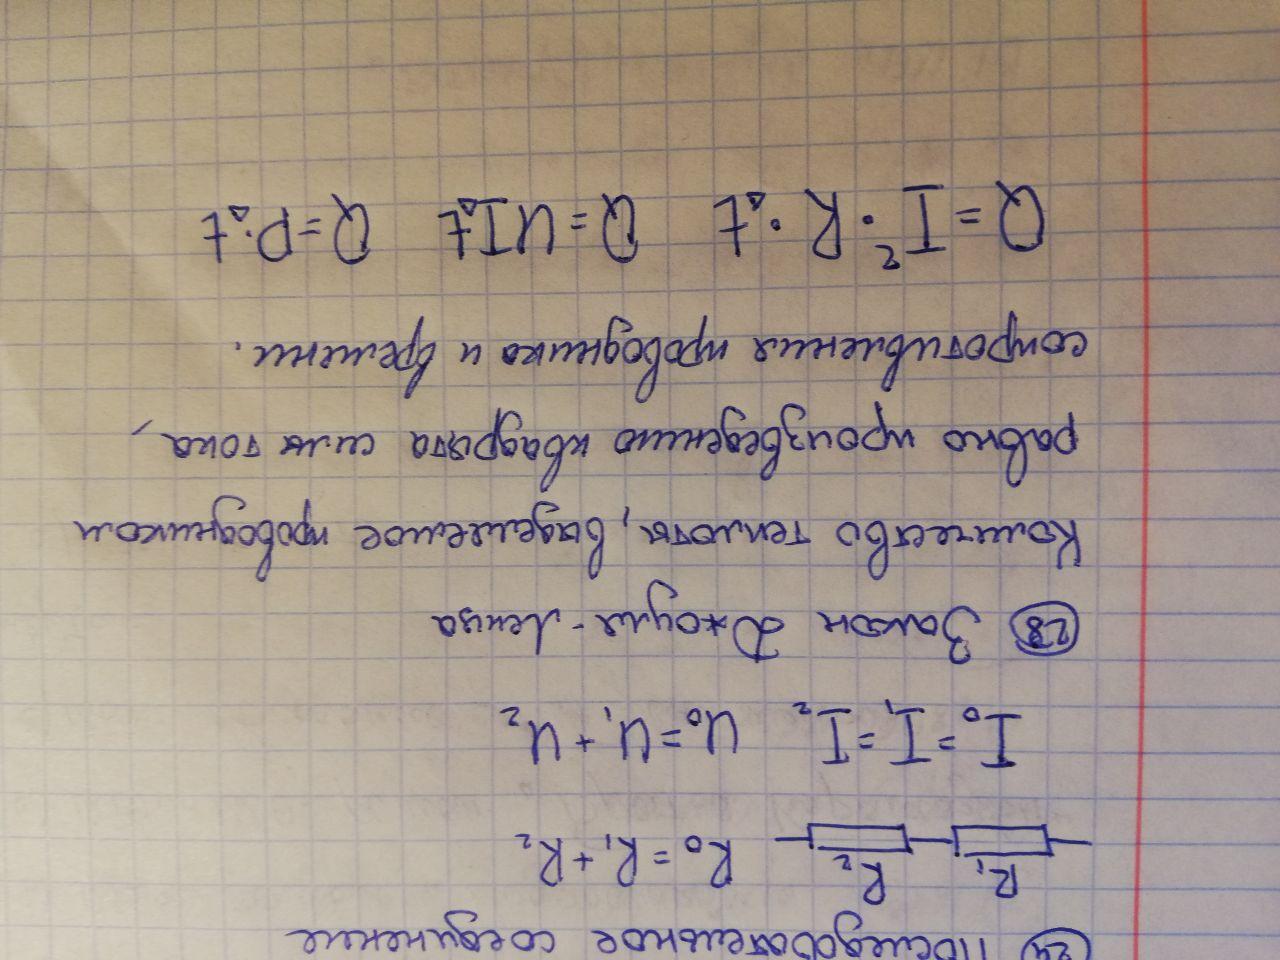 24 Последовательное соединение
R₁ R₂ R₀ = R₁ + R₂
I₀ = I₁ = I₂ U₀ = U₁ + U₂
28 Закон Джоуля-Ленца
Количество теплоты, выделяемое проводником
равно произведению квадрата силы тока,
сопротивления проводника и времени.
Q = I² · R · Δt Q = UIΔt Q = P · Δt